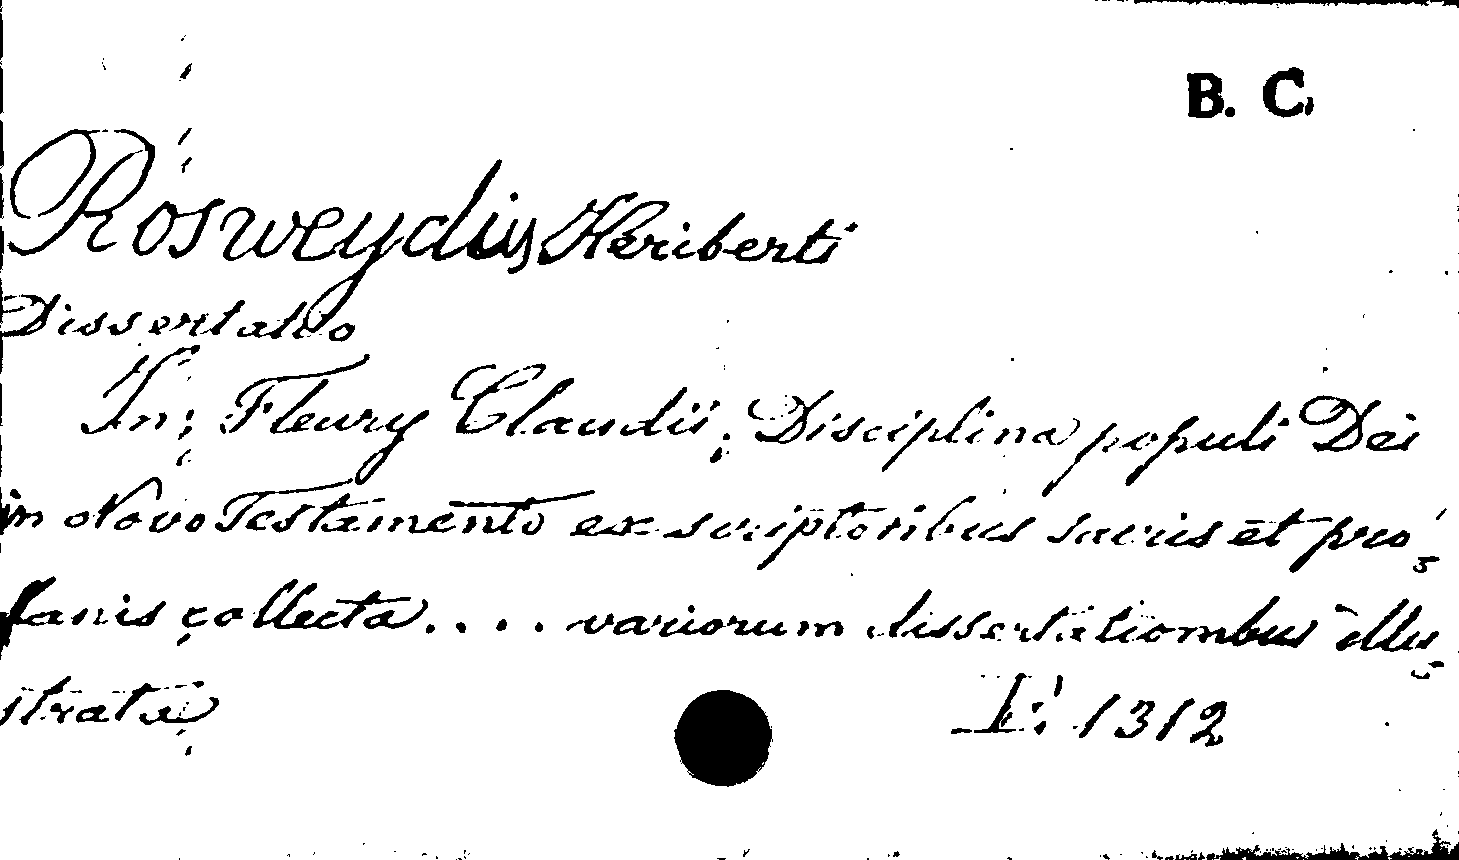 B. C.
Rosweydius, Heriberti
Dissertatio
In: Fleury Claudii; Disciplina populi Dei
in Novo Testamento ex scriptoribus sacris et pro-
fanis collecta.... variorum dissertationibus illu-
strata
I: 1312